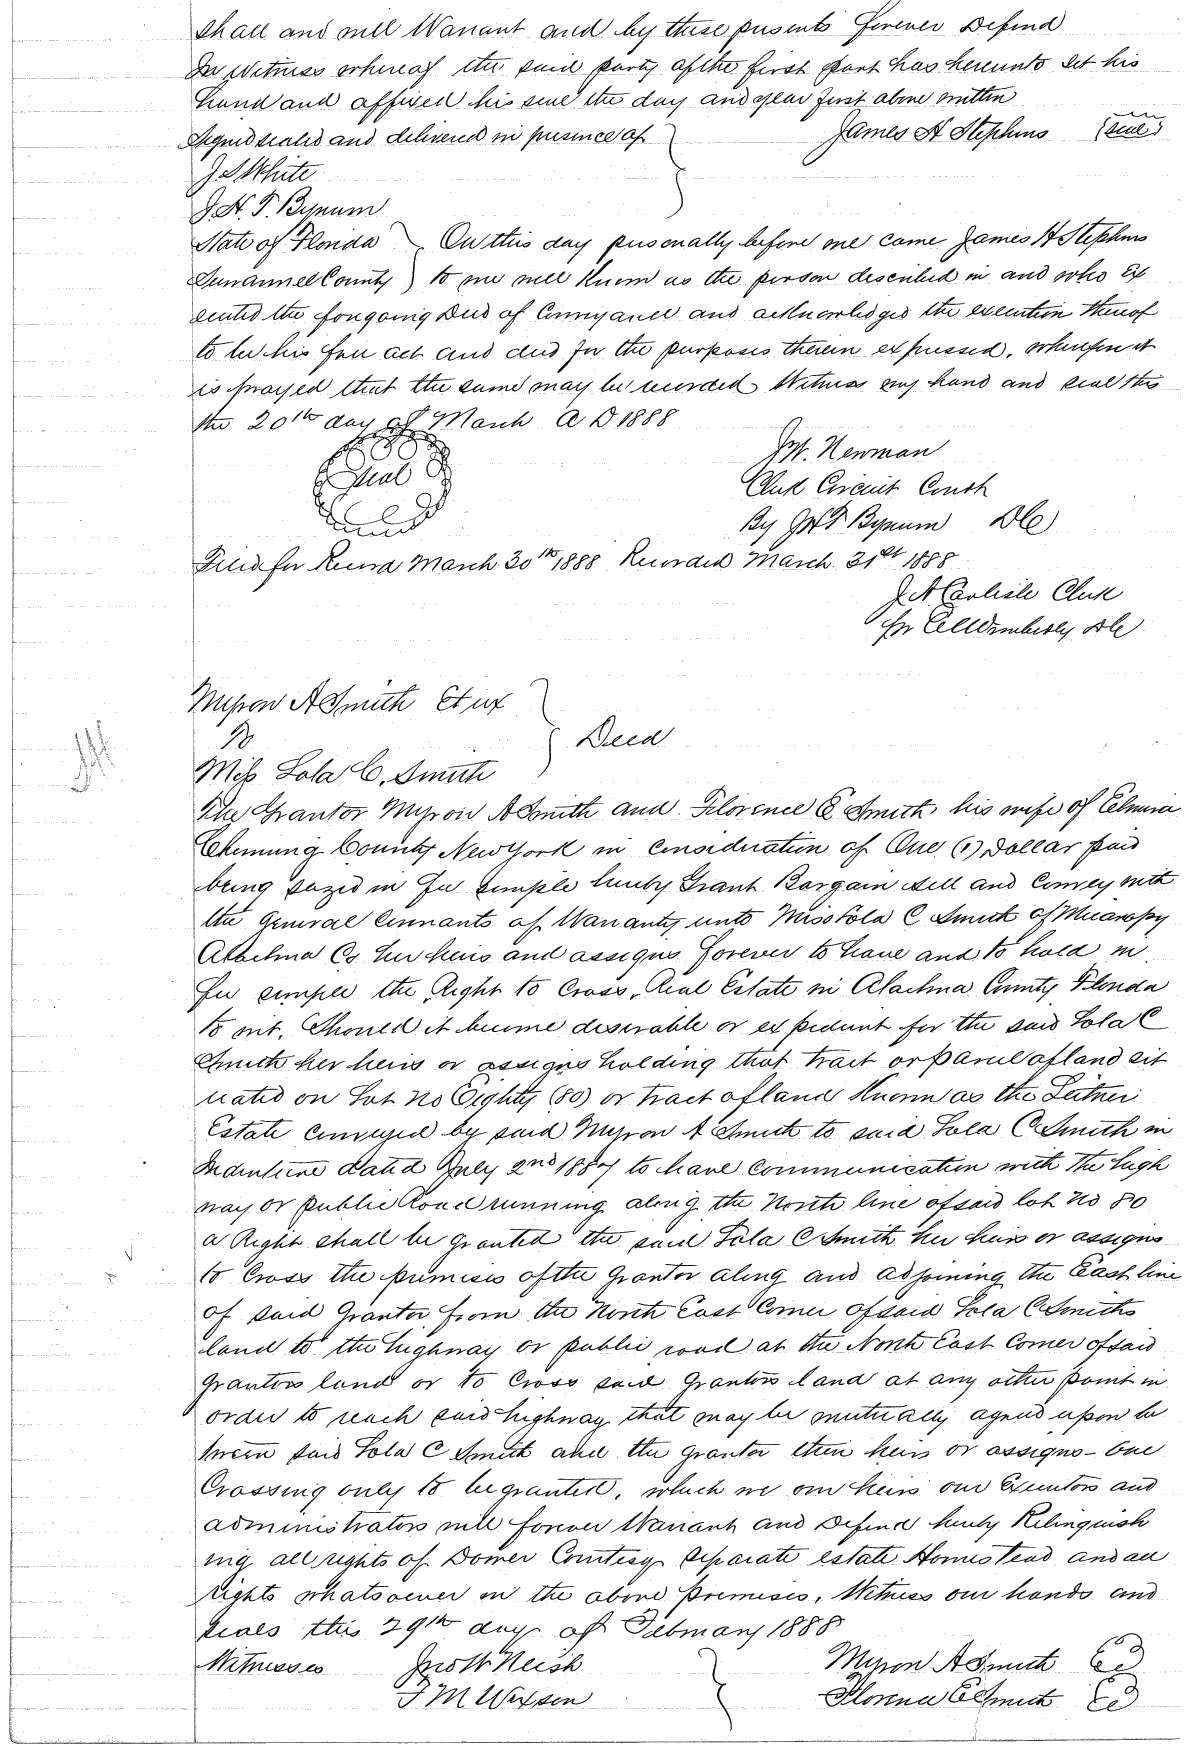 shall and will Warrant and by these presents forever Defend
In Witness whereof the said party of the first part has hereunto set his
hand and affixed his seal the day and year first above written
Signed sealed and delivered in presence of James H Stephens (seal)
J S White
J. H. T. Bynum
State of Florida On this day personally before me came James H Stephens
Suwannee County to me well Known as the person described in and who Ex
ecuted the foregoing Deed of Conveyance and acknowledged the execution thereof
to be his free act and deed for the purposes therein expressed, wherefore it
is prayed that the same may be recorded Witness my hand and seal this
the 20th day of March A D 1888
Seal
J W. Newman
Clerk Circuit Court
By J H T Bynum D C
Filed for Record March 30th 1888 Recorded March 31st 1888
J A Carlisle Clerk
Wimberly D C
Myron A Smith Et ux
To Deed
Miss Lola C. Smith
The Grantor Myron A Smith and Florence E Smith his wife of Elmira
Chemung County New York in consideration of One (1) Dollar paid
being seized in Fee simple hereby Grant Bargain sell and Convey with
the General Covenants of Warranty unto Miss Lola C Smith of Micanopy
Alachua Co her heirs and assigns forever to have and to hold in
fee simple the Right to Cross, Real Estate in Alachua County Florida
to wit, Should it become desirable or expedient for the said Lola C
Smith her heirs or assigns holding that tract or parcel of land sit
uated on Lot No Eighty (80) or tract of land Known as the Leitner
Estate conveyed by said Myron A Smith to said Lola C Smith in
Indenture dated July 2nd 1887 to have communication with the high
way or public Road running along the North line of said lot No 80
a Right shall be granted the said Lola C Smith her heirs or assigns
to Cross the premises of the Grantor along and adjoining the East line
of said Grantor from the North East Corner of said Lola C Smiths
land to the highway or public road at the North East Corner of said
Grantors land or to Cross said Grantors land at any other point in
order to reach said highway that may be mutually agreed upon be
tween said Lola C Smith and the grantor their heirs or assigns - One
Crossing only to be granted, which we our heirs our Executors and
administrators will forever Warrant and Defend hereby Relinquish
ing all rights of Dower Courtesy Separate estate Homestead and all
rights whatsoever in the above premises, Witness our hands and
seals this 29th day of February 1888
Witnesses Jno W Neish Myron A Smith
F M Wixson Florence E Smith